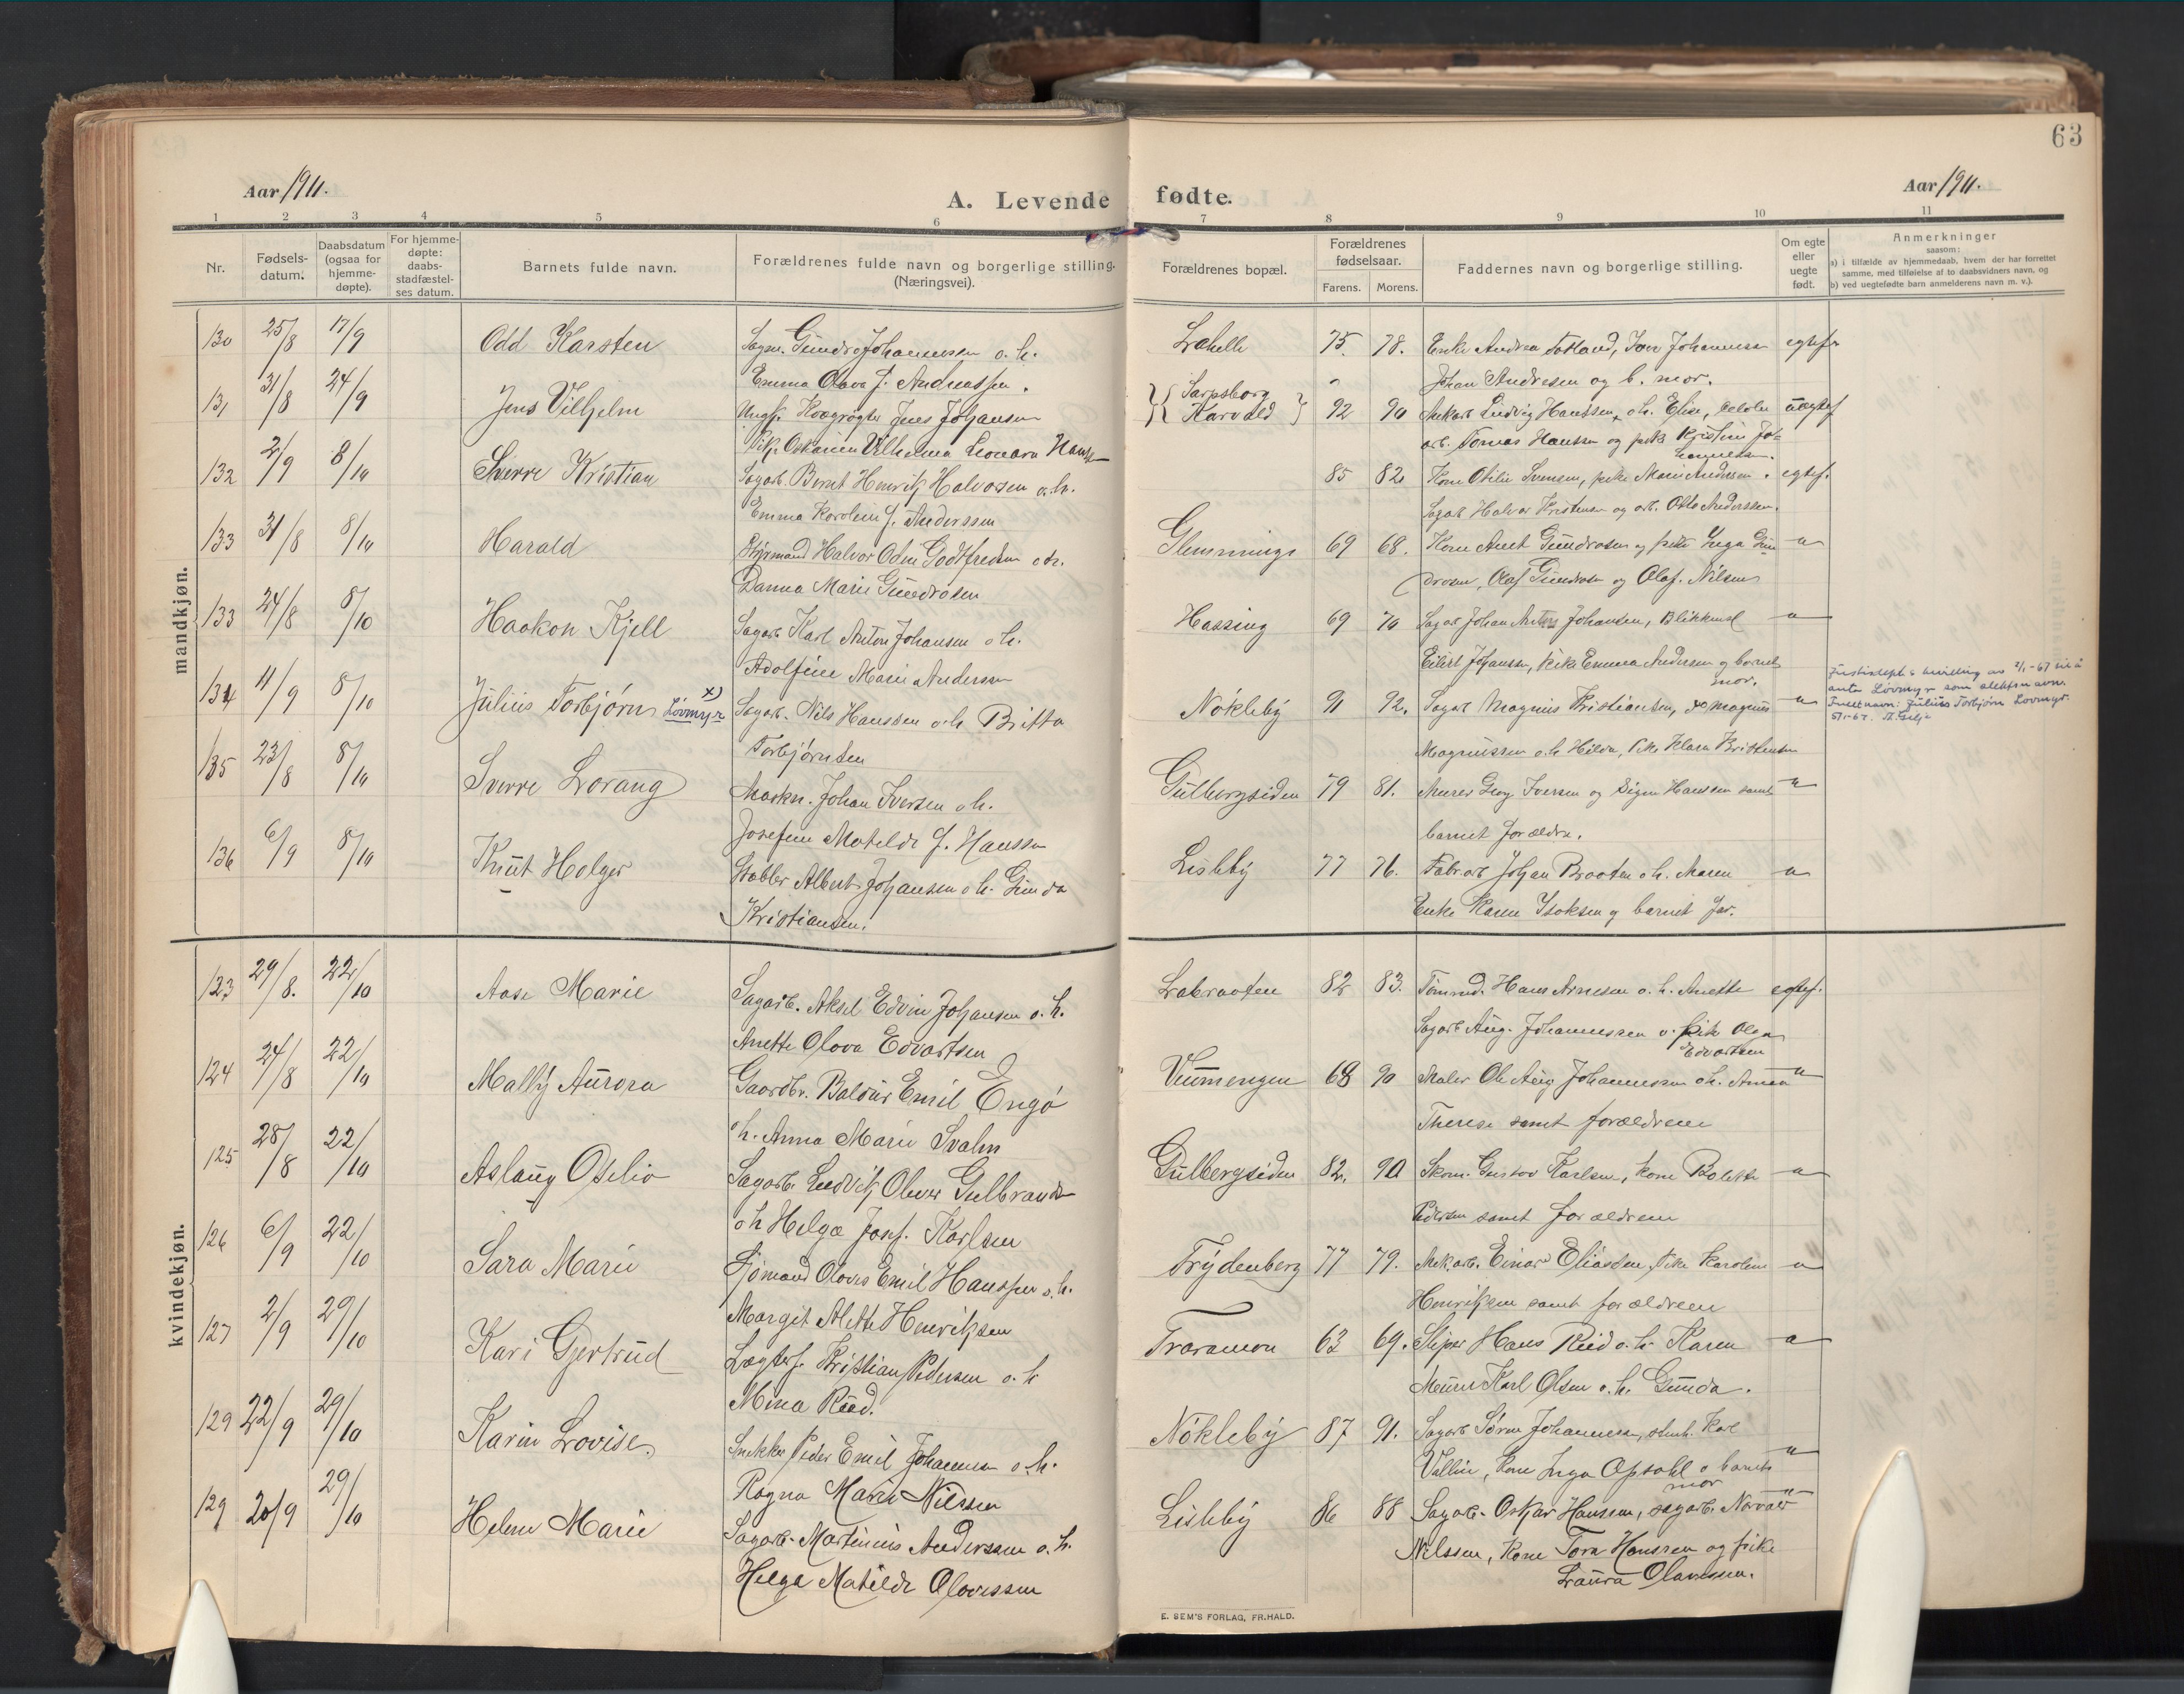 63
Aar 1911.
A. Levende fødte.
Aar 1911.
1 2 3 4 5 6 7 8 9 10 11
Nr.
Fødsels-
datum.
Daabsdatum
(ogsaa for
hjemme-
døpte).
For hjemme-
døpte:
daabs-
stadfæstel-
ses datum.
Barnets fulde navn.
Forældrenes fulde navn og borgerlige stilling.
(Næringsvei).
Forældrenes bopæl.
Forældrenes
fødselsaar.
Farens. Morens.
Faddernes navn og borgerlige stilling.
Om egte
eller
uegte
født.
Anmerkninger
saasom:
a) i tilfælde av hjemmedaab, hvem der har forrettet
samme, med tilføielse af to daabsvidners navn, og
b) ved uegtefødte barn anmelderens navn m. v.).
mandkjøn.
130 25/8 17/9 Odd Karsten Johannessen o. h. 75. 78. Enke Andrea Johannessen egtef.
Emma Olava f. Andreassen. Johan Andresen og b. mor.
131 31/8 24/9 Jens Vilhjelm Ungk. Jens Johansen Sarpsborg 92 90 Ludvig Hanssen o. h. Elise, uegtef
Pik. Vilhelmina Leonora Hans Tomas Hanssen og pike Kristine Jo-
132 2/9 8/10 Sverre Kristian Sagarb. Bernt Henrik Halvorsen o. h. 85 82 Kone Otilie Svensen, pike Marie Andersen. egtef.
Emma Karoline f. Anderssen Sagarb Halvor Kristensen og arb. Otto Anderssen.
133 31/8 8/10 Harald Styrmand Halvor Odin Godtfredsen o. h. Glemminge 69 68. Kone Anet Gundrosen og pike Inga Gun
Danna Marie Gundrosen drosen, Olaf Gundrosen og Olaf. Nilsen
133 24/8 8/10 Haakon Kjell Sagarb Karl Anton Johansen o h. Hassing 69 70 Sagarb Johan Anton Johansen,
Adolfine Marie Andersen Eilert Johansen, pike Emma Andersen og barnets
mor.
134 11/9 8/10 Julius Torbjørn Løvmyr x) Sagarb. Nils Hanssen o. h. Britta Nøkleby 91 92. Sagarb Magnus Kristiansen,
Torbjørnsen Magnussen o. h Hilda, pike Klara Kristensen
som slektsnavn.
Fullt navn: Julius Torbjørn Løvmyr.
135 23/8 8/10 Sverre Lorang Maskn. Johan Iversen o h. Gulbergsiden 79 81. Murer Iversen og Signe Hanssen samt
Josefine Matilde f. Hanssen barnet forældre.
136 6/9 8/10 Knut Holger Stabler Albert Johansen o h. Gunda Lisleby 77 76. Fabr. arb Johan Braaten o h. Maren
Kristiansen. Enke Karen Isaksen og barnet for.
kvindekjøn.
123 29/8. 22/10 Aase Marie Sagarb. Aksel Edvin Johansen o. h. Labraaten 82 83. Tømmd. Hans Arnesen o. h. Anette egtef.
Anette Olava Edvartsen Sagarb Aug. Johannessen o. pike Olga
Edvartsen
124 24/8 22/10 Mally Aurora Gaardbr. Baldur Emil Engø 68 90 Maler Ole Aug Johannessen o h. Anna
o h. Anna Marie Svahn Therese samt forældrene
125 28/8 22/10 Aslaug Otelie Sagarb. Ludvik Oliver Gulbrands Gulbergsiden 82. 90 Skom. Gustav Karlsen, kone Bolette
o h Helga Josf. Karlsen Pedersen samt forældrene
126 6/9 22/10 Sara Marie Sjømand Olaves Emil Hanssen o. h. Trydenberg 77 79. Mek. arb. Einar Eliassen, pike Karoline
Margit Alette Henriksen Henriksen samt forældrene
127 2/9 29/10 Kari Gjertrud Kristian Pedersen o. h Traramon 63 69. Sliper Hans Ruud o. h. Karen
Mina Ruud. Murer Karl Olsen o. h. Gunda.
129 22/9 29/10 Karin Lovise. Snekker Peder Emil Johannessen o. h. Nøkleby 87 91. Sagarb Søren Johannessen, Karl
Ragna Marie Nilssen Vallin, kone Inga Opsahl o barnets
mor
129 20/9 29/10 Helene Marie Sagarb. Martinius Anderssen o. h. Lisleby 86 88 Sagarb. Oskar Hanssen, sagarb. Norvald
Helga Matilde Olavessen Nilssen, kone Tora Hanssen og pike
Laura Olavessen.
E. SEM'S FORLAG, FR.HALD.